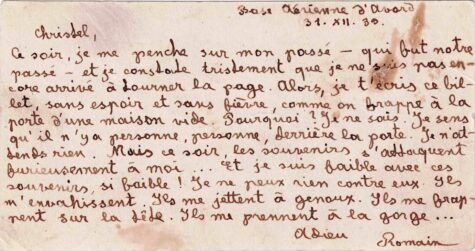 Base Aérienne d'Avord
31. XII. 38.
Christel,
Ce soir, je me penche sur mon passé – qui fut notre
passé – et je constate tristement que je ne suis pas en-
core arrivé à tourner la page. Alors, je t'écris ce bil-
let, sans espoir et sans fièvre, comme on frappe à la
porte d'une maison vide. Pourquoi? Je ne sais. Je sens
qu'il n'y a personne, personne, derrière la porte. Je n'at-
tends rien. Mais ce soir, les souvenirs s'attaquent
furieusement à moi ... Et je suis faible avec ces
souvenirs, si faible! Je ne peux rien contre eux. Ils
m'envahissent. Ils me jettent à genoux. Ils me frap-
pent sur la tête. Ils me prennent à la gorge ...
Adieu
Romain